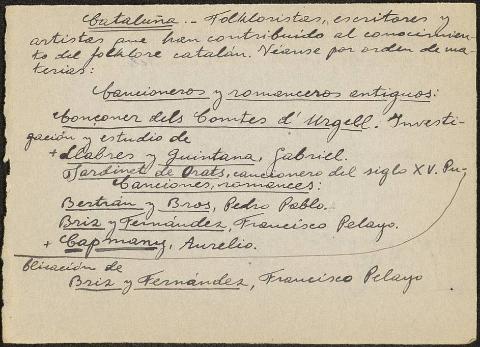 Cataluña.- Folkloristas, escritores y
artistas que han contribuido al conocimien-
to del folklore catalán. Véanse por orden de ma-
terias:
Cancioneros y romanceros antiguos:
Cançoner dels Comtes d'Urgell. Investi-
gación y estudio de
+ Llabres y Quintana, Gabriel.
Jardinet de Orats, cancionero del siglo XV. Pu-
Canciones, romances:
Bertrán y Bros, Pedro Pablo.
Briz y Fernández, Francisco Pelayo.
+ Capmany, Aurelio.
blicación de
Briz y Fernández, Francisco Pelayo